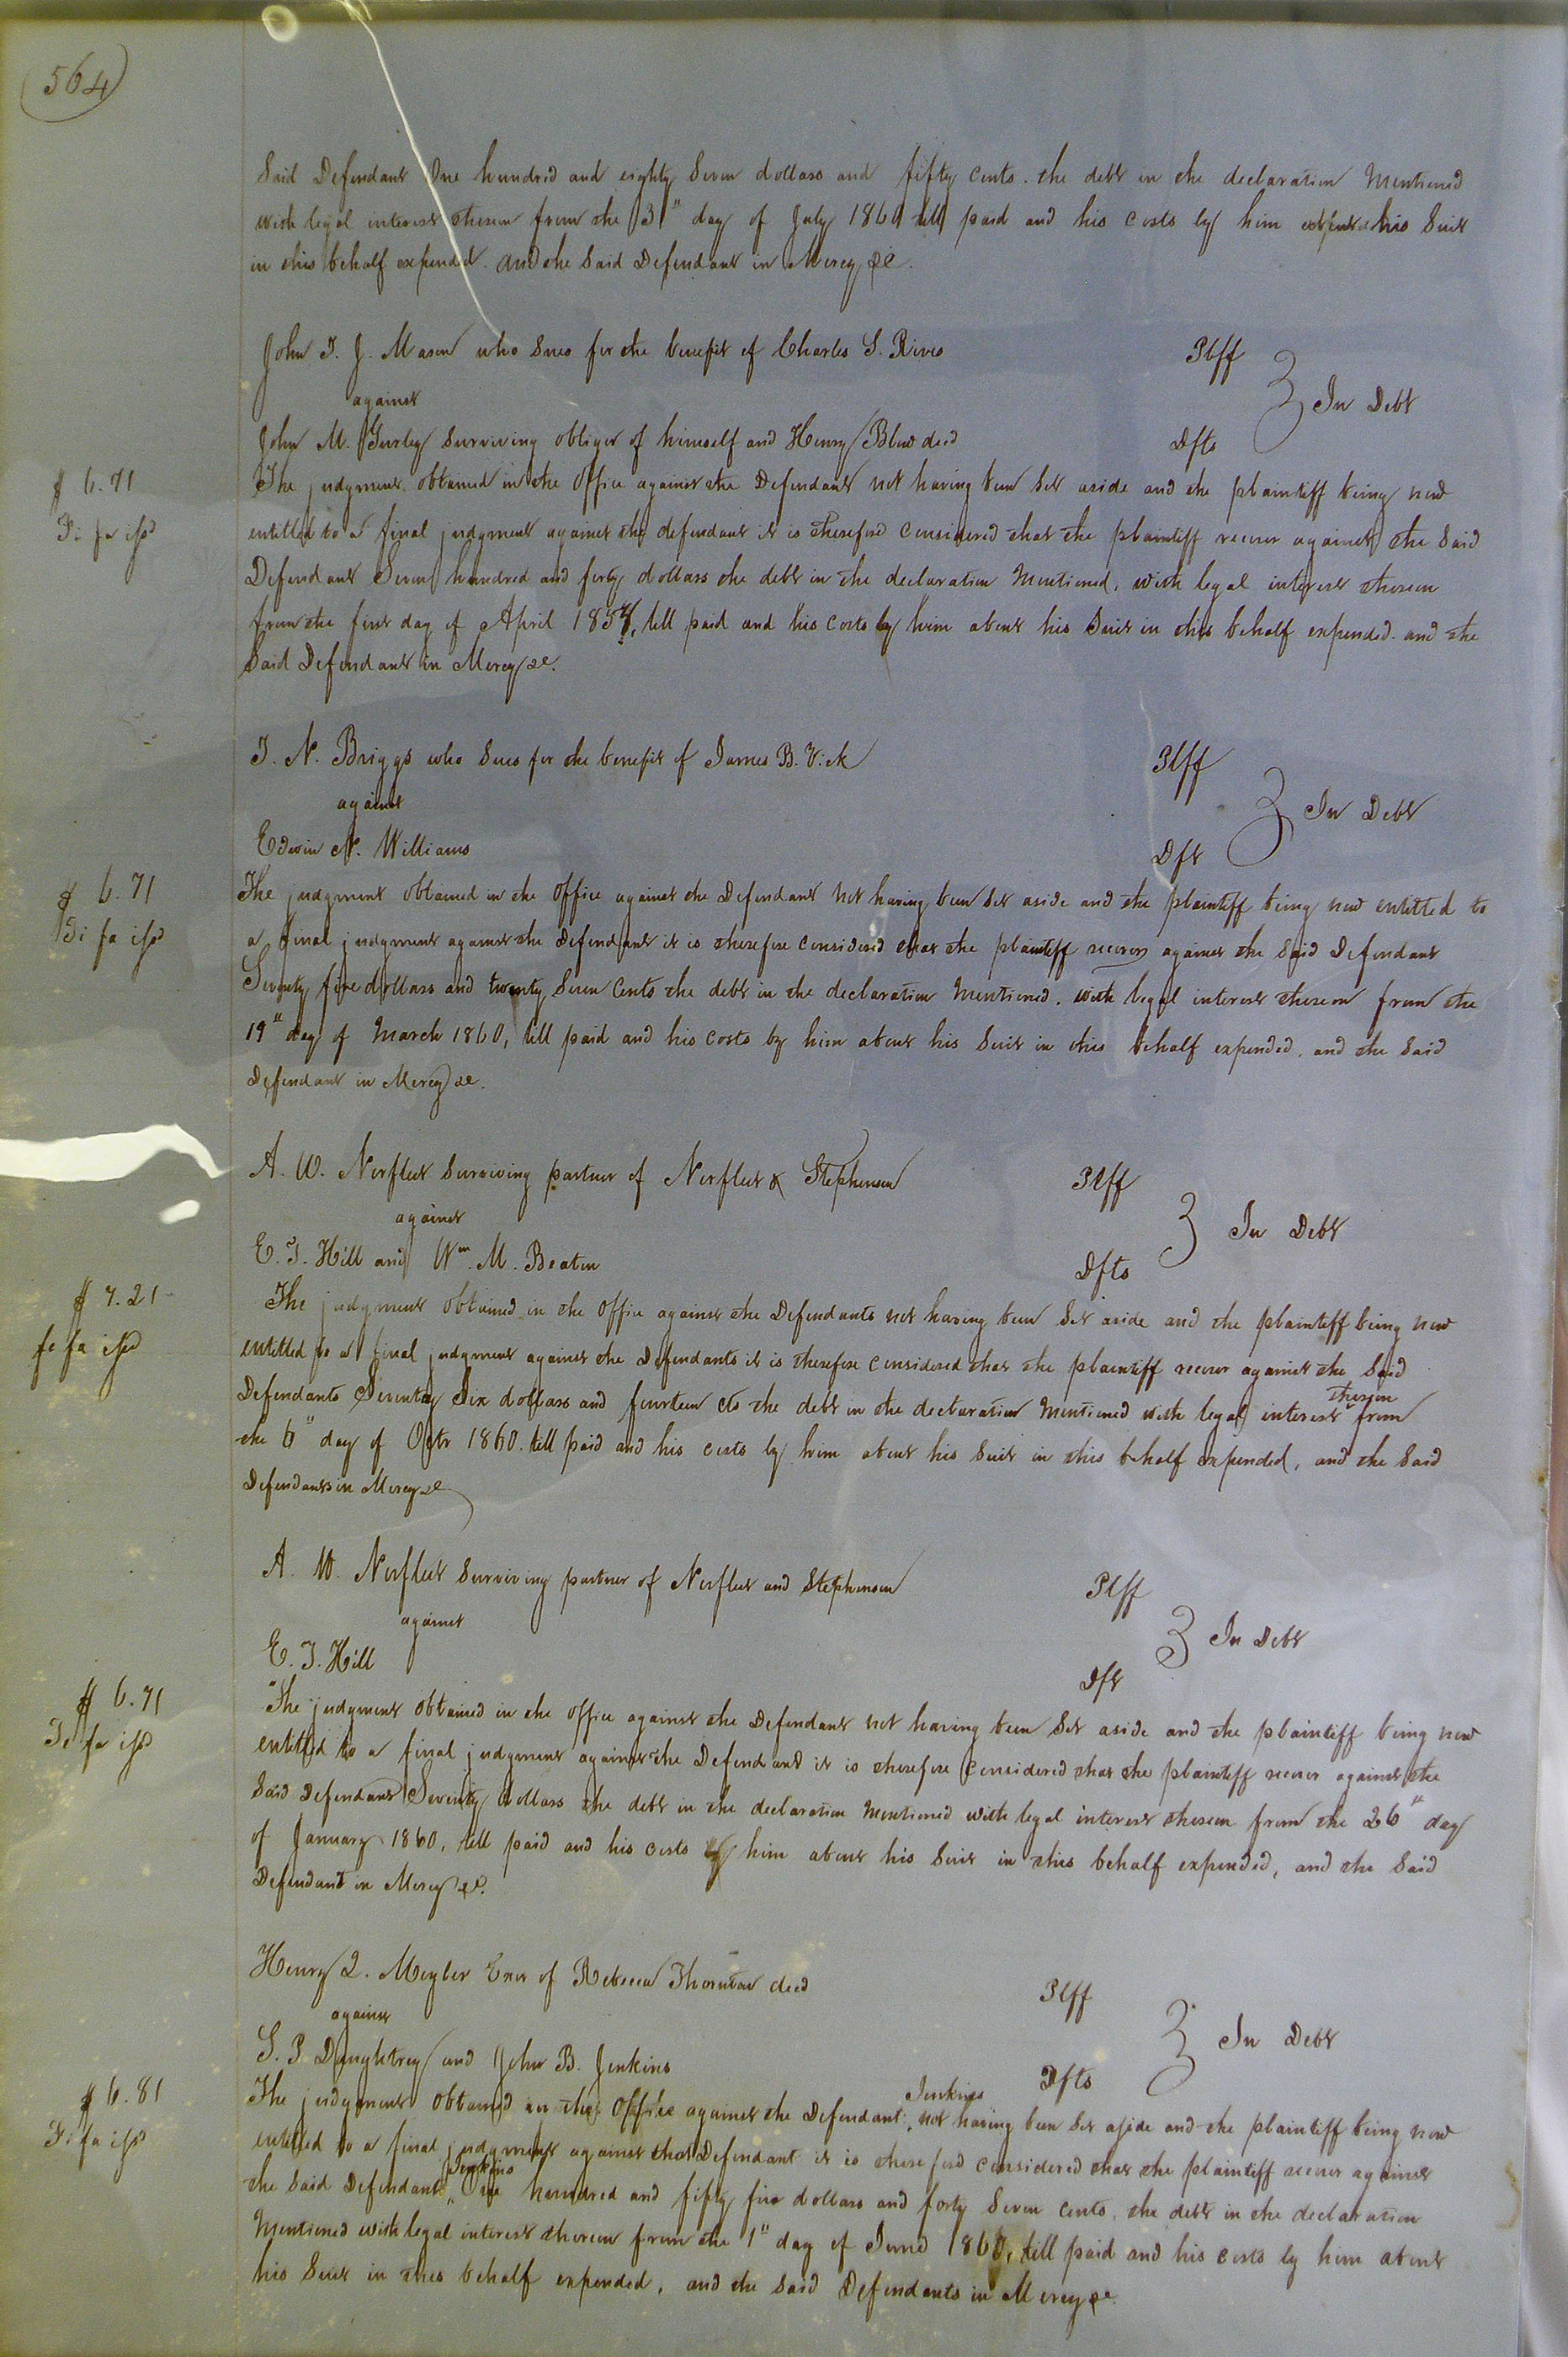 564
Said Defendant One hundred and eighty Seven dollars and fifty cents. the debt in the declaration Mentioned
with legal interest thereon from the 31" day of July 1860 till paid and his costs by him his Suit
in this behalf expended. and the Said Defendant in Mercy &c.
John T. J. Mason who Sues for the benefit of Charles S. Rives Plff
against In Debt
John M. Gurley Surviving obligor of himself and Henry Blow decd Dfts
$ 6.71
The judgment obtained in the Office against the Defendant not having been Set aside and the plaintiff being now
Fi fa issd
entitled to a final judgment against the defendant it is therefore Considered that the plaintiff recover against the Said
Defendant Seven hundred and forty dollars the debt in the declaration Mentioned, with legal interest thereon
from the first day of April 185 till paid and his costs by him about his Suit in this behalf expended. and the
Said Defendant in Mercy &c.
T. N. Briggs who Sues for the benefit of James B. Vick Plff
against In Debt
Edwin N. Williams Dft
$ 6.71
The judgment obtained in the Office against the Defendant not having been Set aside and the plaintiff being now entitled to
Fi fa issd
a final judgment against the Defendant it is therefore Considered that the plaintiff recover against the Said Defendant
Seventy five dollars and twenty Seven Cents the debt in the declaration Mentioned. with legal interest thereon from the
19" day of March 1860, till paid and his costs by him about his Suit in this behalf expended, and the Said
Defendant in Mercy &c.
A. W. Norfleet Surviving partner of Norfleet & Stephenson Plff
against In Debt
E. T. Hill and Wm. M. Beaton Dfts
$ 7.21
The judgment obtained in the Office against the Defendants not having been Set aside and the plaintiff being now
fi fa issd
entitled to a final judgment against the Defendants it is therefore Considered that the plaintiff recover against the Said
Defendants Seventy Six dollars and fourteen cts the debt in the declaration Mentioned with legal interest thereon from
the 6" day of Octr 1860. till paid and his costs by him about his Suit in this behalf expended, and the Said
Defendants in Mercy &c
A. W. Norfleet Surviving partner of Norfleet and Stephenson Plff
against In Debt
E. T. Hill Dft
$ 6.71
The judgment obtained in the Office against the Defendant not having been Set aside and the plaintiff being now
Fi fa issd
entitled to a final judgment against the Defendant it is therefore Considered that the plaintiff recover against the
Said Defendant Seventy dollars the debt in the declaration Mentioned with legal interest thereon from the 26" day
of January 1860, till paid and his costs by him about his Suit in this behalf expended, and the Said
Defendant in Mercy &c.
Henry Q. Moyler Exor of Rebecca Thornton decd Plff
against In Debt
S. P. Daughtrey and John B. Jenkins Dfts
$ 6.81
The judgment obtained in the Office against the Defendant Jenkins not having been Set aside and the plaintiff being now
Fi fa issd
entitled to a final judgment against that Defendant it is therefore considered that the plaintiff recover against
the Said Defendant Jenkins One hundred and fifty five dollars and forty Seven cents, the debt in the declaration
Mentioned with legal interest thereon from the 1" day of June 1860, till paid and his costs by him about
his Suit in this behalf expended, and the Said Defendants in Mercy &c.